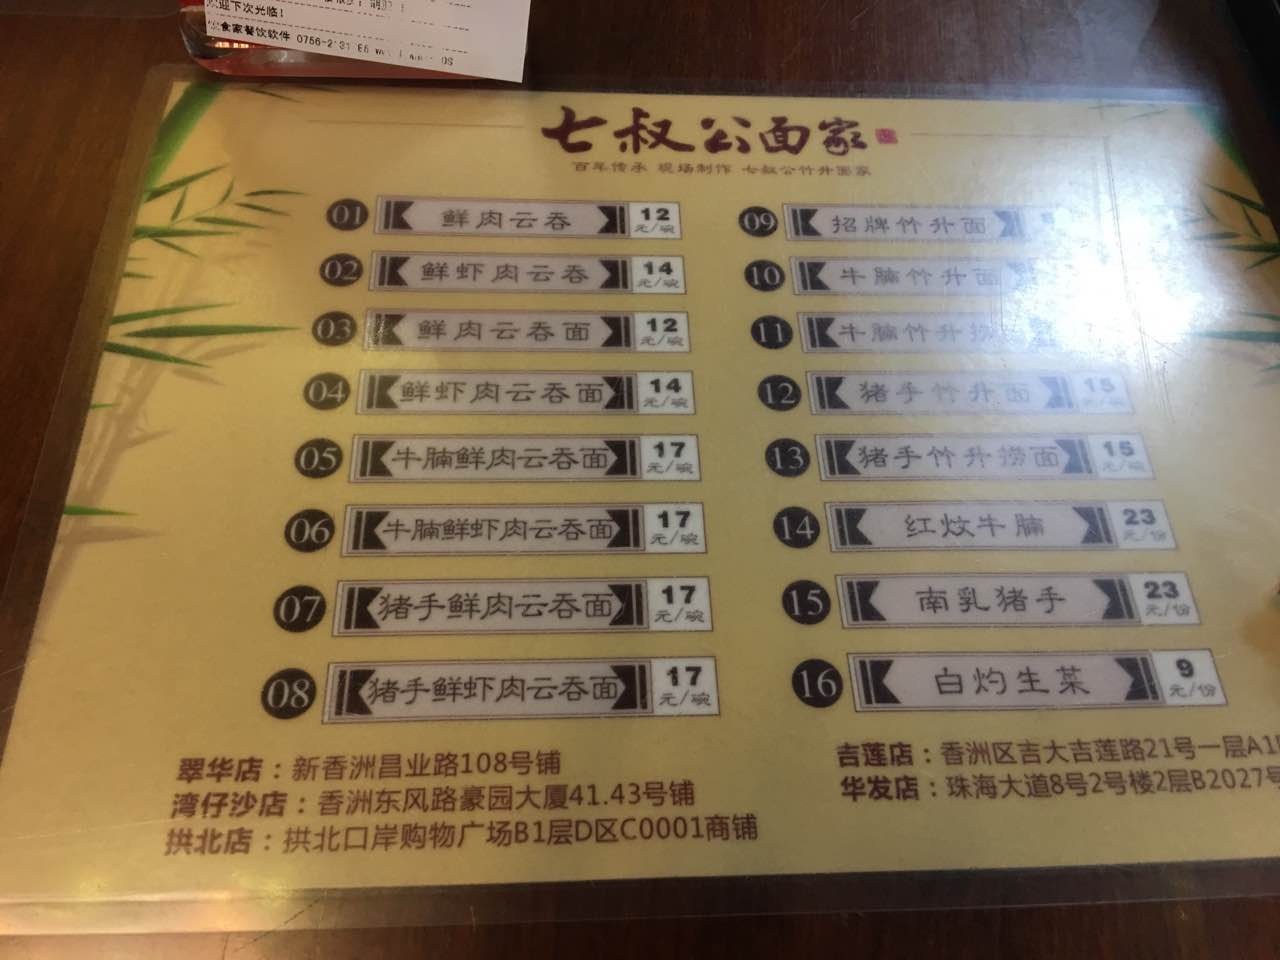 欢迎下次光临!
食家餐饮软件 0756-2
七叔公面家
百年传承 现场制作 七叔公竹升面家
01 鲜肉云吞 12元/碗
02 鲜虾肉云吞 14元/碗
03 鲜肉云吞面 12元/碗
04 鲜虾肉云吞面 14元/碗
05 牛腩鲜肉云吞面 17元/碗
06 牛腩鲜虾肉云吞面 17元/碗
07 猪手鲜肉云吞面 17元/碗
08 猪手鲜虾肉云吞面 17元/碗
09 招牌竹升面
10 牛腩竹升面
11 牛腩竹升捞
12 猪手竹升面 15元/碗
13 猪手竹升捞面 15元/碗
14 红炆牛腩 23元/份
15 南乳猪手 23元/份
16 白灼生菜 9元/份
翠华店：新香洲昌业路108号铺
湾仔沙店：香洲东风路豪园大厦41.43号铺
拱北店：拱北口岸购物广场B1层D区C0001商铺
吉莲店：香洲区吉大吉莲路21号一层A1
华发店：珠海大道8号2号楼2层B2027号